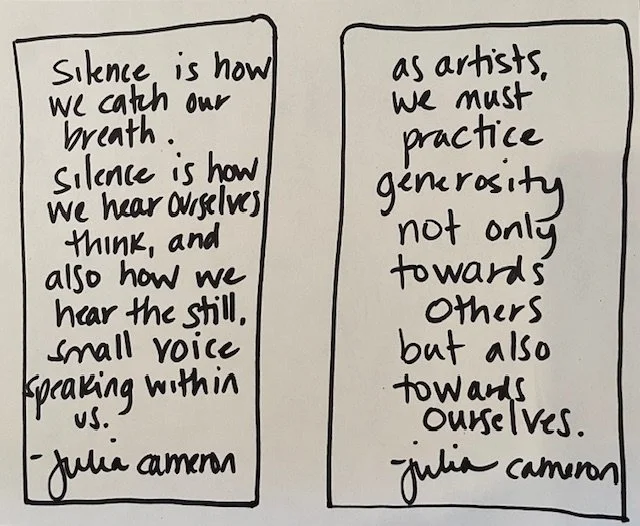 Silence is how
we catch our
breath.
Silence is how
we hear ourselves
think, and
also how we
hear the still,
small voice
speaking within
us.
-julia cameron
as artists,
we must
practice
generosity
not only
towards
others
but also
towards
ourselves.
-julia cameron